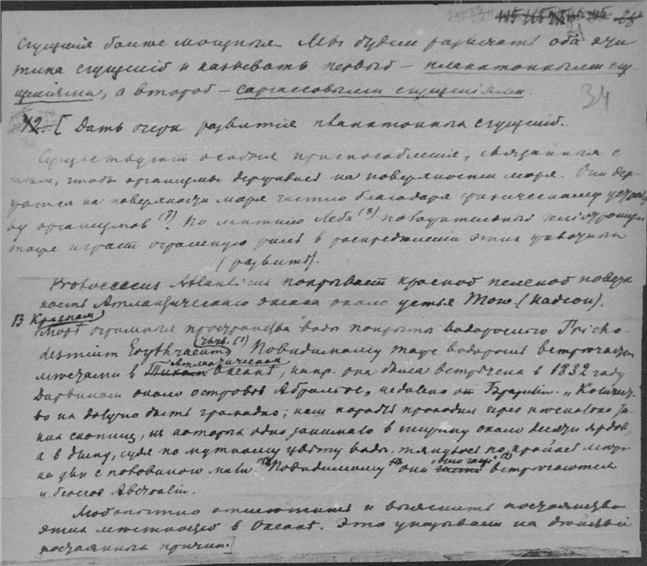 сгущения более мощныя. Мы будем различать оба эти
типа сгущений и называть первый – планктонными сгу-
щениями, а второй – саргассовыми сгущениями.
34
42. [Дать очерк развития планктонных сгущений.
Существуют особые приспособления, связанныя с
тем, чтобы организмы держались на поверхности моря. Они дер-
жатся на поверхности моря частью благодаря физическому
организмов (1). По мнению Леба (2)
также играет огромную роль в распределении этих животных
(развить).
Protococcus Atlanticus покрывает красной пеленой поверх-
ность Атлантическаго океана около устья (Надсон).
В Красном
море огромныя пространства воды покрыты водорослью Tricho-
desmium Erythraeum Повидимому таже водоросль встречается
местами в Атлантическом Океане, напр. она была встречена в 1832 году
Дарвином около островов Абролгос, недалеко от Бразилии. „Количест-
во их должно быть громадно; наш корабль проходил через несколько та-
ких скоплищ, из которых одно занимало в ширину около десяти ярдов,
а в длину, судя по мутному цвету воды, тянулось по крайней мере
на две с половиною мили" Повидимому они встречаются
и близь Австралии.
Любопытно отметить и выяснить постоянство
этих местностей в Океане. Это указывает на
постоянныя причины.]